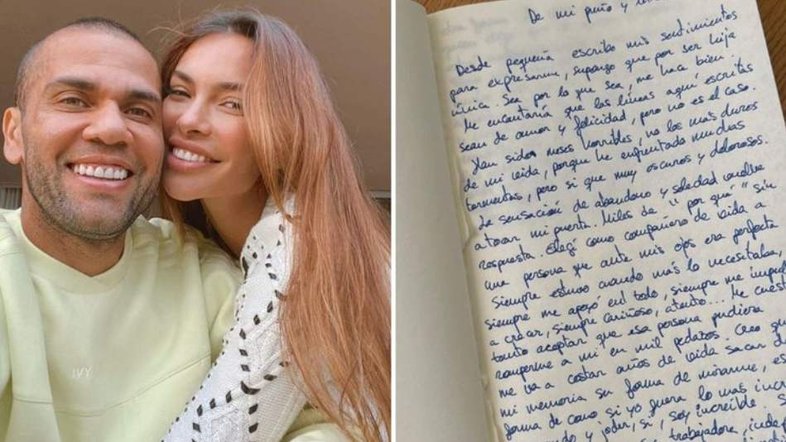 IVY
De mi puño y
Desde pequeña escribo mis sentimientos
para expresarme, supongo que por ser hija
única. Sea por lo que sea, me hace bien.
Me encantaría que las líneas aquí escritas
sean de amor y felicidad, pero no es el caso.
Han sidos meses horribles, no los más duros
de mi vida, porque he enfrentado muchas
tormentas, pero si que muy oscuros y dolorosos.
La sensación de abandono y soledad vuelve
a tocar mi puerta. Miles de "por qué" sin
respuesta. Elegí como compañero de vida a
una persona que ante mis ojos era perfecta
siempre estuvo cuando más lo necesitaba,
siempre me apoyó en todo, siempre me impul
a crear, siempre cariñoso, atento... Me cuest
tanto aceptar que esa persona pudiera
romperme a mi en mil pedazos. Creo qu
me va a costar años de vida sacar de
mi memoria su forma de mirarme, es
forma de como si yo fuera lo más incre
ndo y joder, si, soy increíble. S
trabajadora, inde